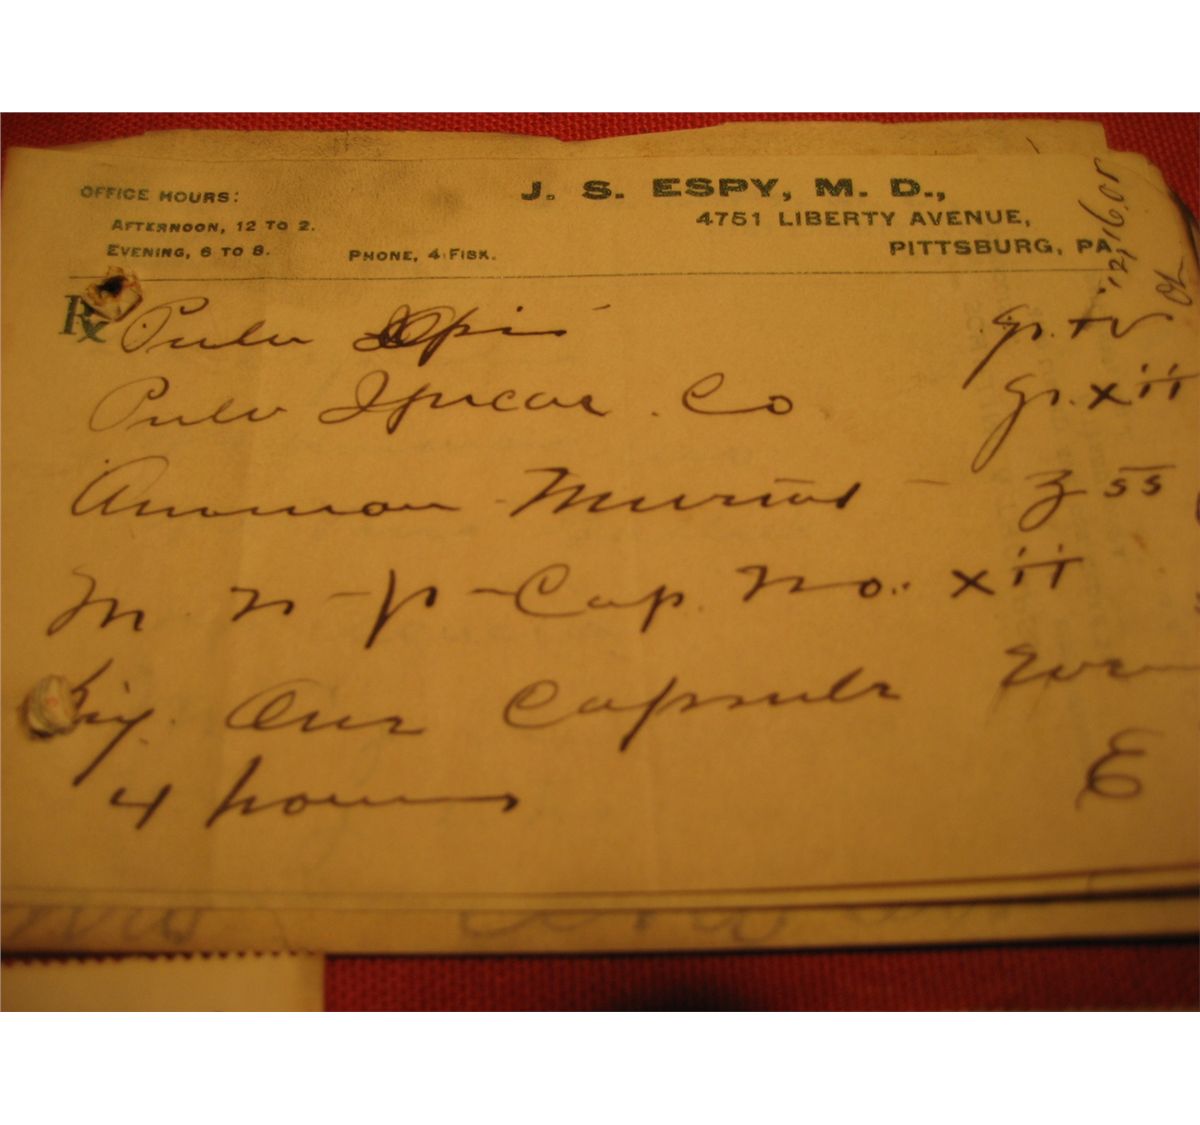 OFFICE HOURS:
AFTERNOON, 12 TO 2.
EVENING, 6 TO 8.
PHONE, 4 FISK.
J. S. ESPY, M. D.,
4751 LIBERTY AVENUE,
PITTSBURG, PA
Rx Pulv Opii gr.
Pulv Ipecac. Co gr. xii
Ammon - Muriat - ʒ ss
M. Cap. No. xii
Sig. One Capsule Every
4 hours
E